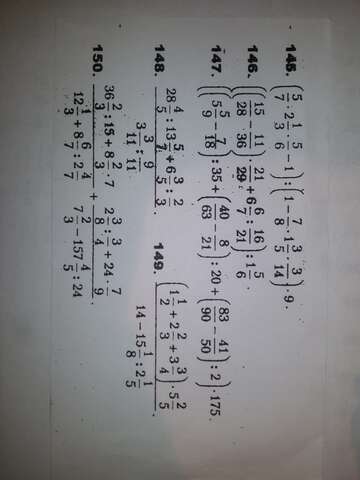 145. (5/7 · 2 1/3 · 5/6 − 1) : (1 − 7/8 · 1 3/5 · 3/14) · 9.
146. ((15/28 − 11/36) · 21/29 + 6 6/7 : 16/21) : 1 5/6
147. ((5 5/9 − 7/18) : 35 + (40/63 − 8/21) : 20 + (83/90 − 41/50) : 2) · 175.
148. 28 4/5 : 13 5/7 + 6 3/5 : 2/3
3 3/11 : 9/11
149. (1 1/2 + 2 2/3 + 3 3/4) · 5 2/5
14 − 15 1/8 : 2 1/5
150. 36 2/3 : 15 + 8 2/3 · 7
12 1/3 + 8 6/7 : 2 4/7
+
2 3/8 : 3/4 + 24 · 7/9
7 2/3 − 157 4/5 : 24